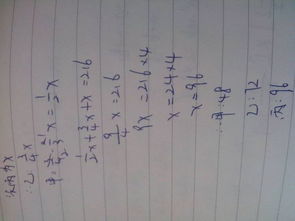 设丙为x
∴乙:3/4x
甲:2/3·3/4x=1/2x
1/2x+3/4x+x=216
9/4x=216
9x=216×4
x=24×4
x=96
∴甲:48
乙:72
丙:96